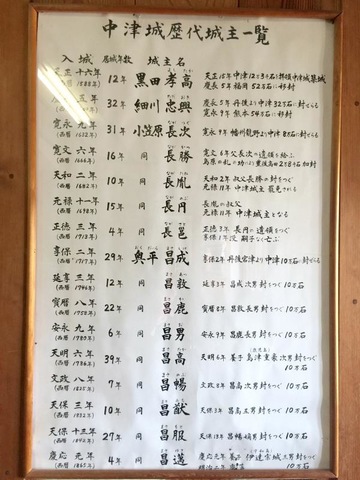 中津城歴代城主一覧
入城 居城年数 城主名
天正十六年 (西暦1588年) 12年 黒田孝高 天正15年中津12万3千石拝領中津城築城
慶長5年筑前福岡52万石に移封
五年 32年 細川忠興 慶長5年丹後より中津32万石に封ぜらる
寛永9年熊本54万石に移封
寛永九年 (西暦1632年) 31年 小笠原長次 寛永9年播州龍野より中津8万石に封ぜらる
寛文六年 (西暦1666年) 16年 同 長勝 寛文6年父長次の遺領を给ふ
天和二年 (西暦1682年) 10年 同 長胤 天和2年叔父長勝の封をつぐ
元禄11年
元禄十一年 (西暦1698年) 15年 同 長円 長胤の叔父
元禄11年中津城主となる
正徳三年 (西暦1713年) 4年 同 長邕 正徳3年長円の遺領をつぐ
享保1年没 嗣子なく亡ぶ
享保二年 (西暦1717年) 29年 奥平昌成 享保2年丹後宮津より中津10万石に封ぜらる
延享三年 (西暦1746年) 12年 同 昌敦 延享3年昌成次男封をつぐ10万石
宝暦八年 (西暦1758年) 22年 同 昌鹿 宝暦8年昌敦長男封をつぐ10万石
安永九年 (西暦1780年) 6年 同 昌男 安永9年昌鹿長男封をつぐ10万石
天明六年 (西暦1786年) 39年 同 昌高 天明6年養子島津重豪次男封をつぐ
10万石
文政八年 (西暦1825年) 7年 同 昌暢 文政8年昌高次男封をつぐ10万石
天保三年 (西暦1832年) 10年 同 昌猷 天保3年昌高三男封をつぐ10万石
天保十三年 (西暦1842年) 27年 同 昌服 天保13年昌暢嫡男封をつぐ10万石
慶応元年 (西暦1865年) 4年 同 昌邁 慶応元年養子伊達宗城三男封をつぐ
10万石